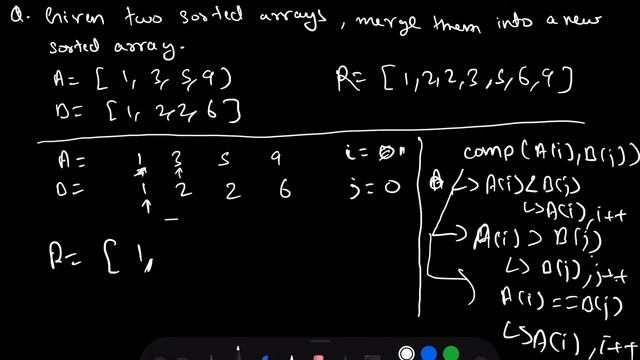 Q. Given two sorted arrays, merge them into a new
sorted array.
A = [ 1, 3, 5, 9 )
B = [ 1, 2, 2, 6 ]
R = [ 1, 2, 2, 3, 5, 6, 9 ]
A = 1 3 5 9
B = 1 2 2 6
i = 1
j = 0
R = [ 1,
comp (A(i), B(j))
A(i) < B(j)
↳ A(i), i++
A(i) > B(j)
↳ B(j), j++
A(i) == B(j)
↳ A(i), i++